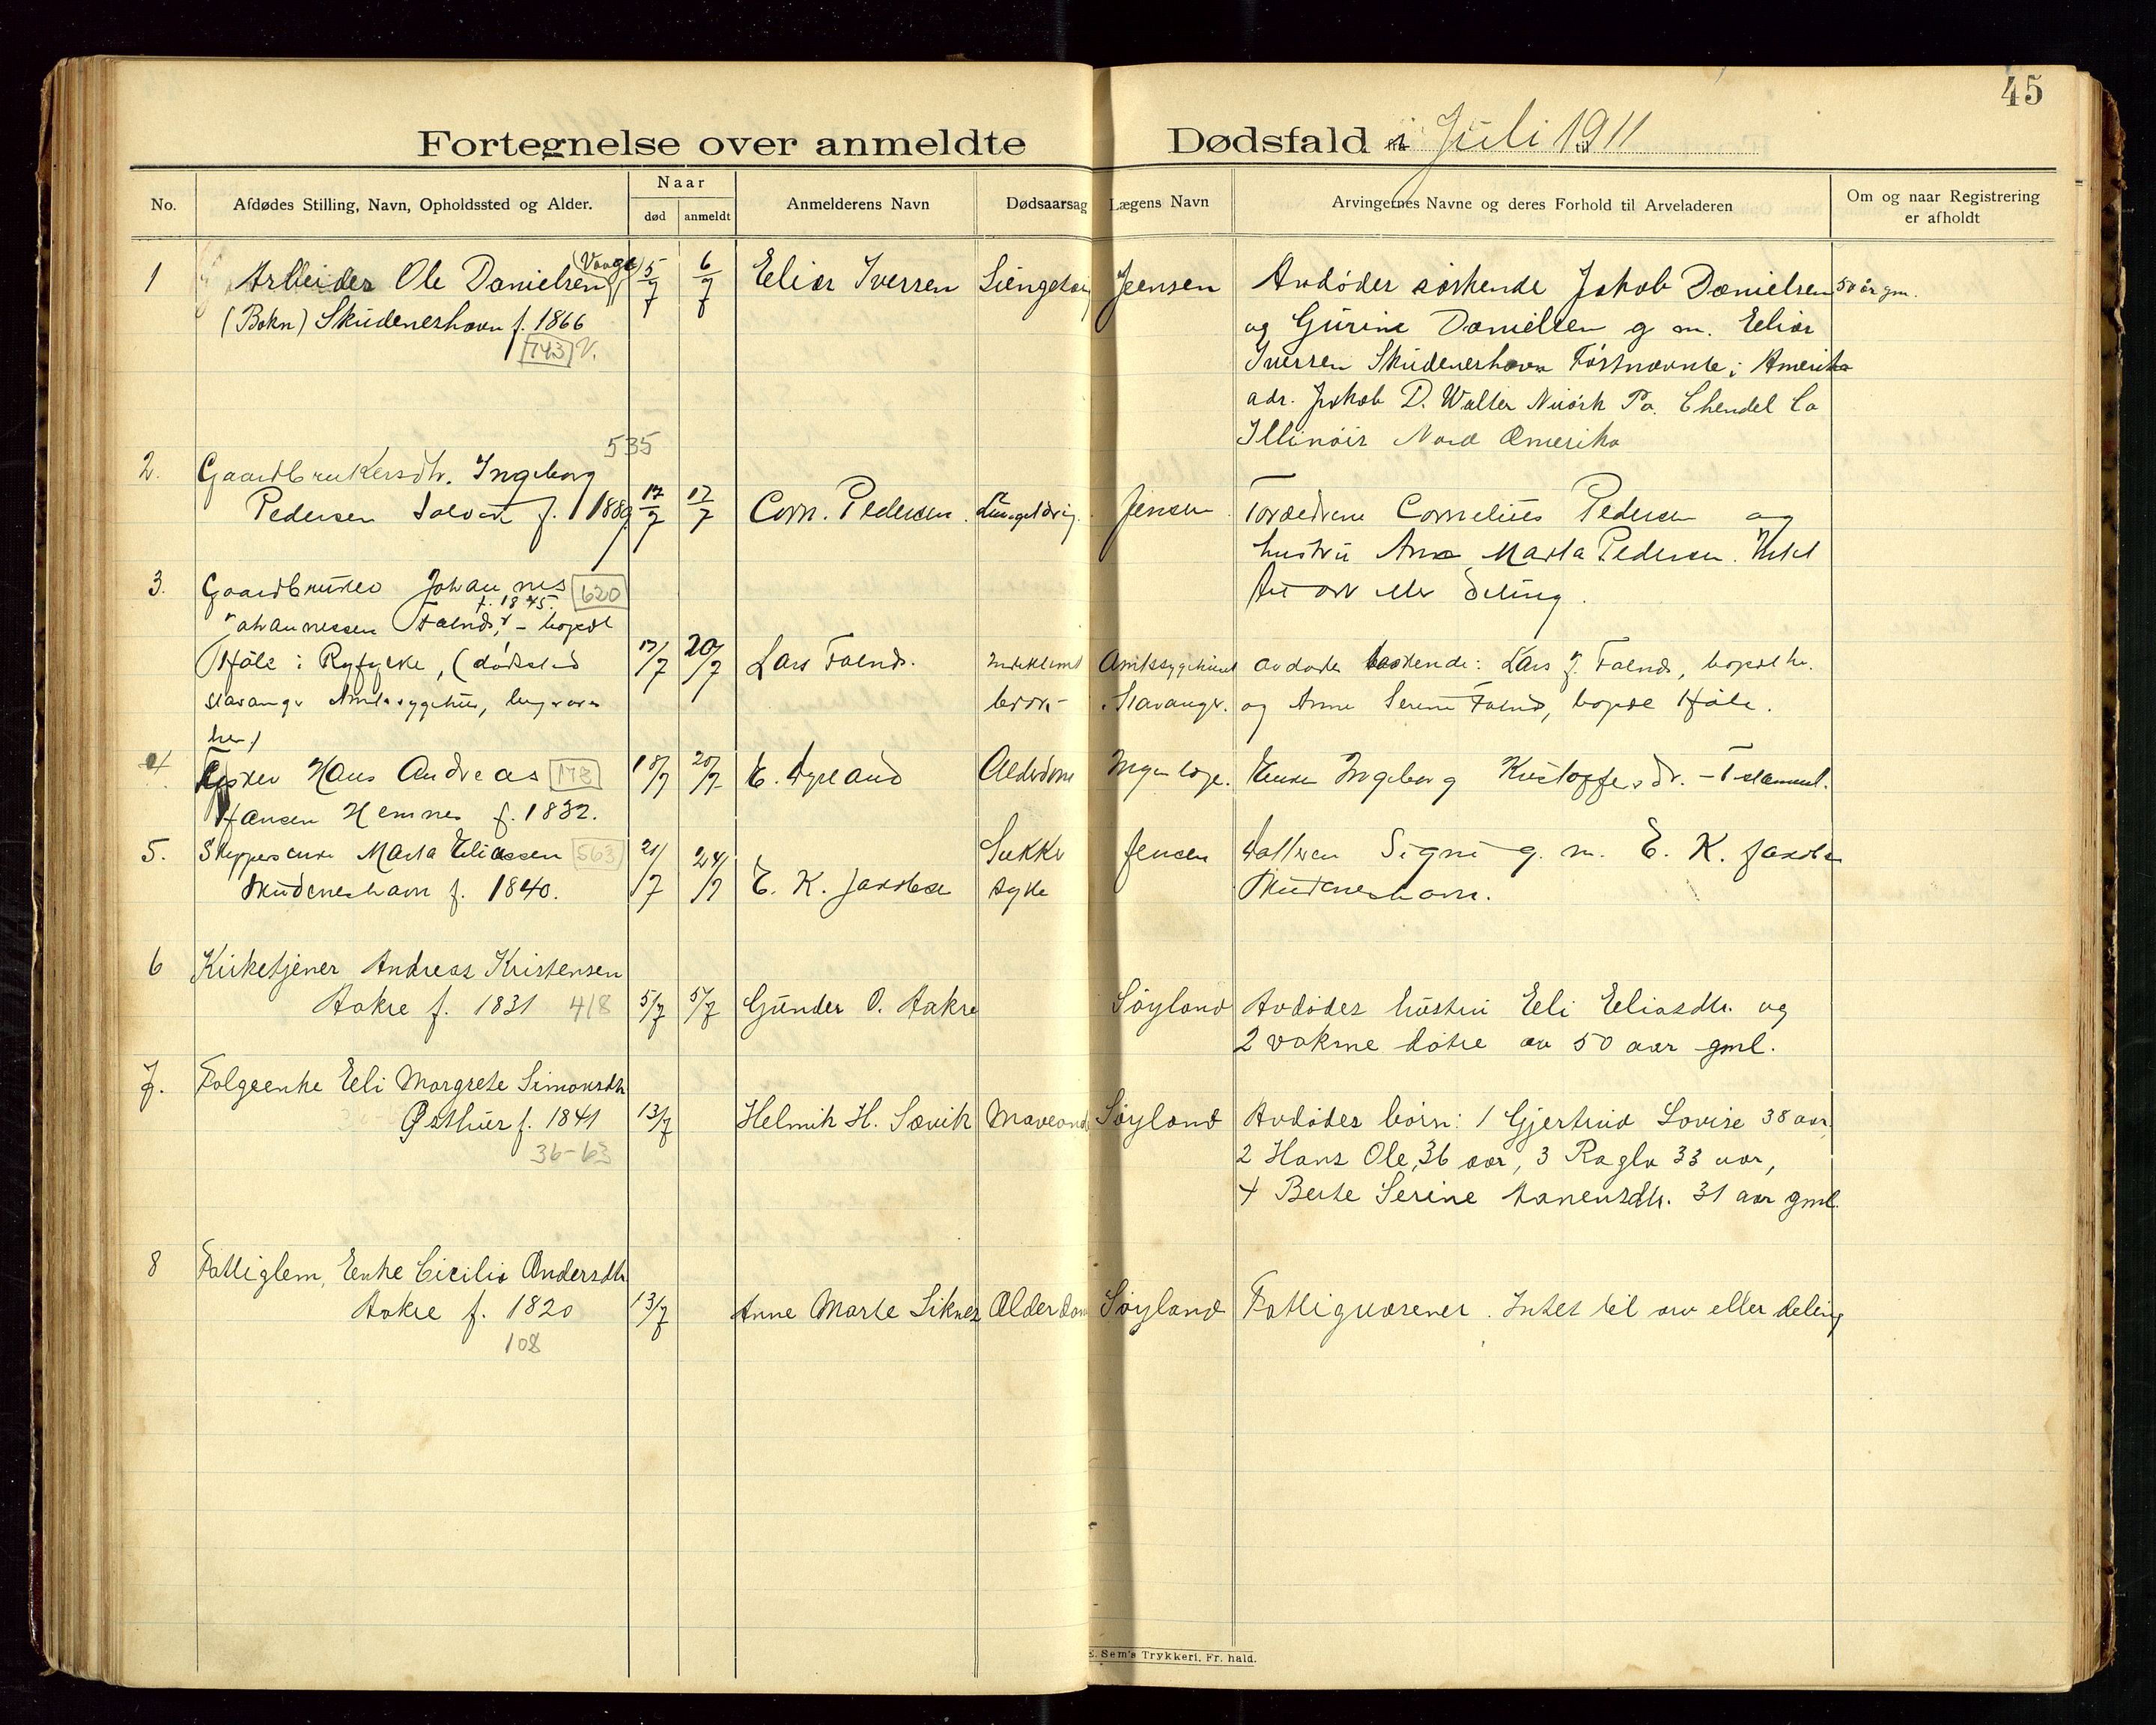 45
Fortegnelse over anmeldte Dødsfald i Juli 1911
No. Afdødes Stilling, Navn, Opholdssted og Alder. Naar død anmeldt Anmelderens Navn Dødsaarsag Lægens Navn Arvingernes Navne og deres Forhold til Arveladeren Om og naar Registrering er afholdt
1 Arbeider Ole Danielsen (Vaage) 5/7 6/7 Elias Iversen Jensen Avdødes søskende Jakob Danielsen 50 år gm.
(Bokn) Skudeneshavn f. 1866 og Gurine Danielsen g m. Elias
743 V. Iversen Skudeneshavn Førstnævnte i Amerika
adr. Jakob D. Walter Po. Co
Illinois Nord Amerika
535
2. Gaardbrukersdtr. Ingeborg
Pedersen f. 1889 17/7 17/7 Corn. Pedersen Jensen Forældrene Cornelius Pedersen og
hustru Ana Marta Pedersen. Intet
til arv eller deling.
3. Gaardbruker Johannes 620
f. 1845.
Johannessen Falnes, bopæl
Håle i Ryfylke, (dødssted 17/7 20/7 Lars Falnes. Amtssygehuset avdødes søskende: Lars J. Falnes, bopæl her
Stavanger Amtssygehus, begraves Stavanger. og Anne Serine Falnes, bopæl Håle.
her)
4. Hans Andreas 173 18/7 20/7 E. Alderdom Ingen læge. Enken Ingeborg Kristoffersdr.
Hansen Hemnes f. 1832.
5. Skippersenke Marta Eliassen 563 21/7 24/7 E. K. Jacobsen Sukker Jensen Datteren Signe g. m. E. K. Jacobsen
Skudeneshavn f. 1840. syke Skudeneshavn.
6 Kirketjener Andreas Kristensen
Aakre f. 1831 418 5/7 5/7 Gunder O. Aakre Søyland Avdødes hustru Eli Eliasdtr. og
2 voksne døtre av 50 aar gml.
7. Folgeenke Eli Margrete Simonsdtr
Østhus f. 1841 13/7 Helmik H. Sævik Søyland Avdødes børn: 1 Gjertrud Lovise 38 aar,
36-63 2 Hans Ole, 36 aar, 3 Ragla 33 aar,
4 Berte Serine Aanensdtr. 31 aar gml.
8 Fattiglem, Enke Cicilia Andersdtr
Aakre f. 1820 13/7 Anne Marte Liknes Alderdom Søyland Fattigvæsenet. Intet til arv eller deling
108
E. Sem's Trykkeri, Fr. hald.